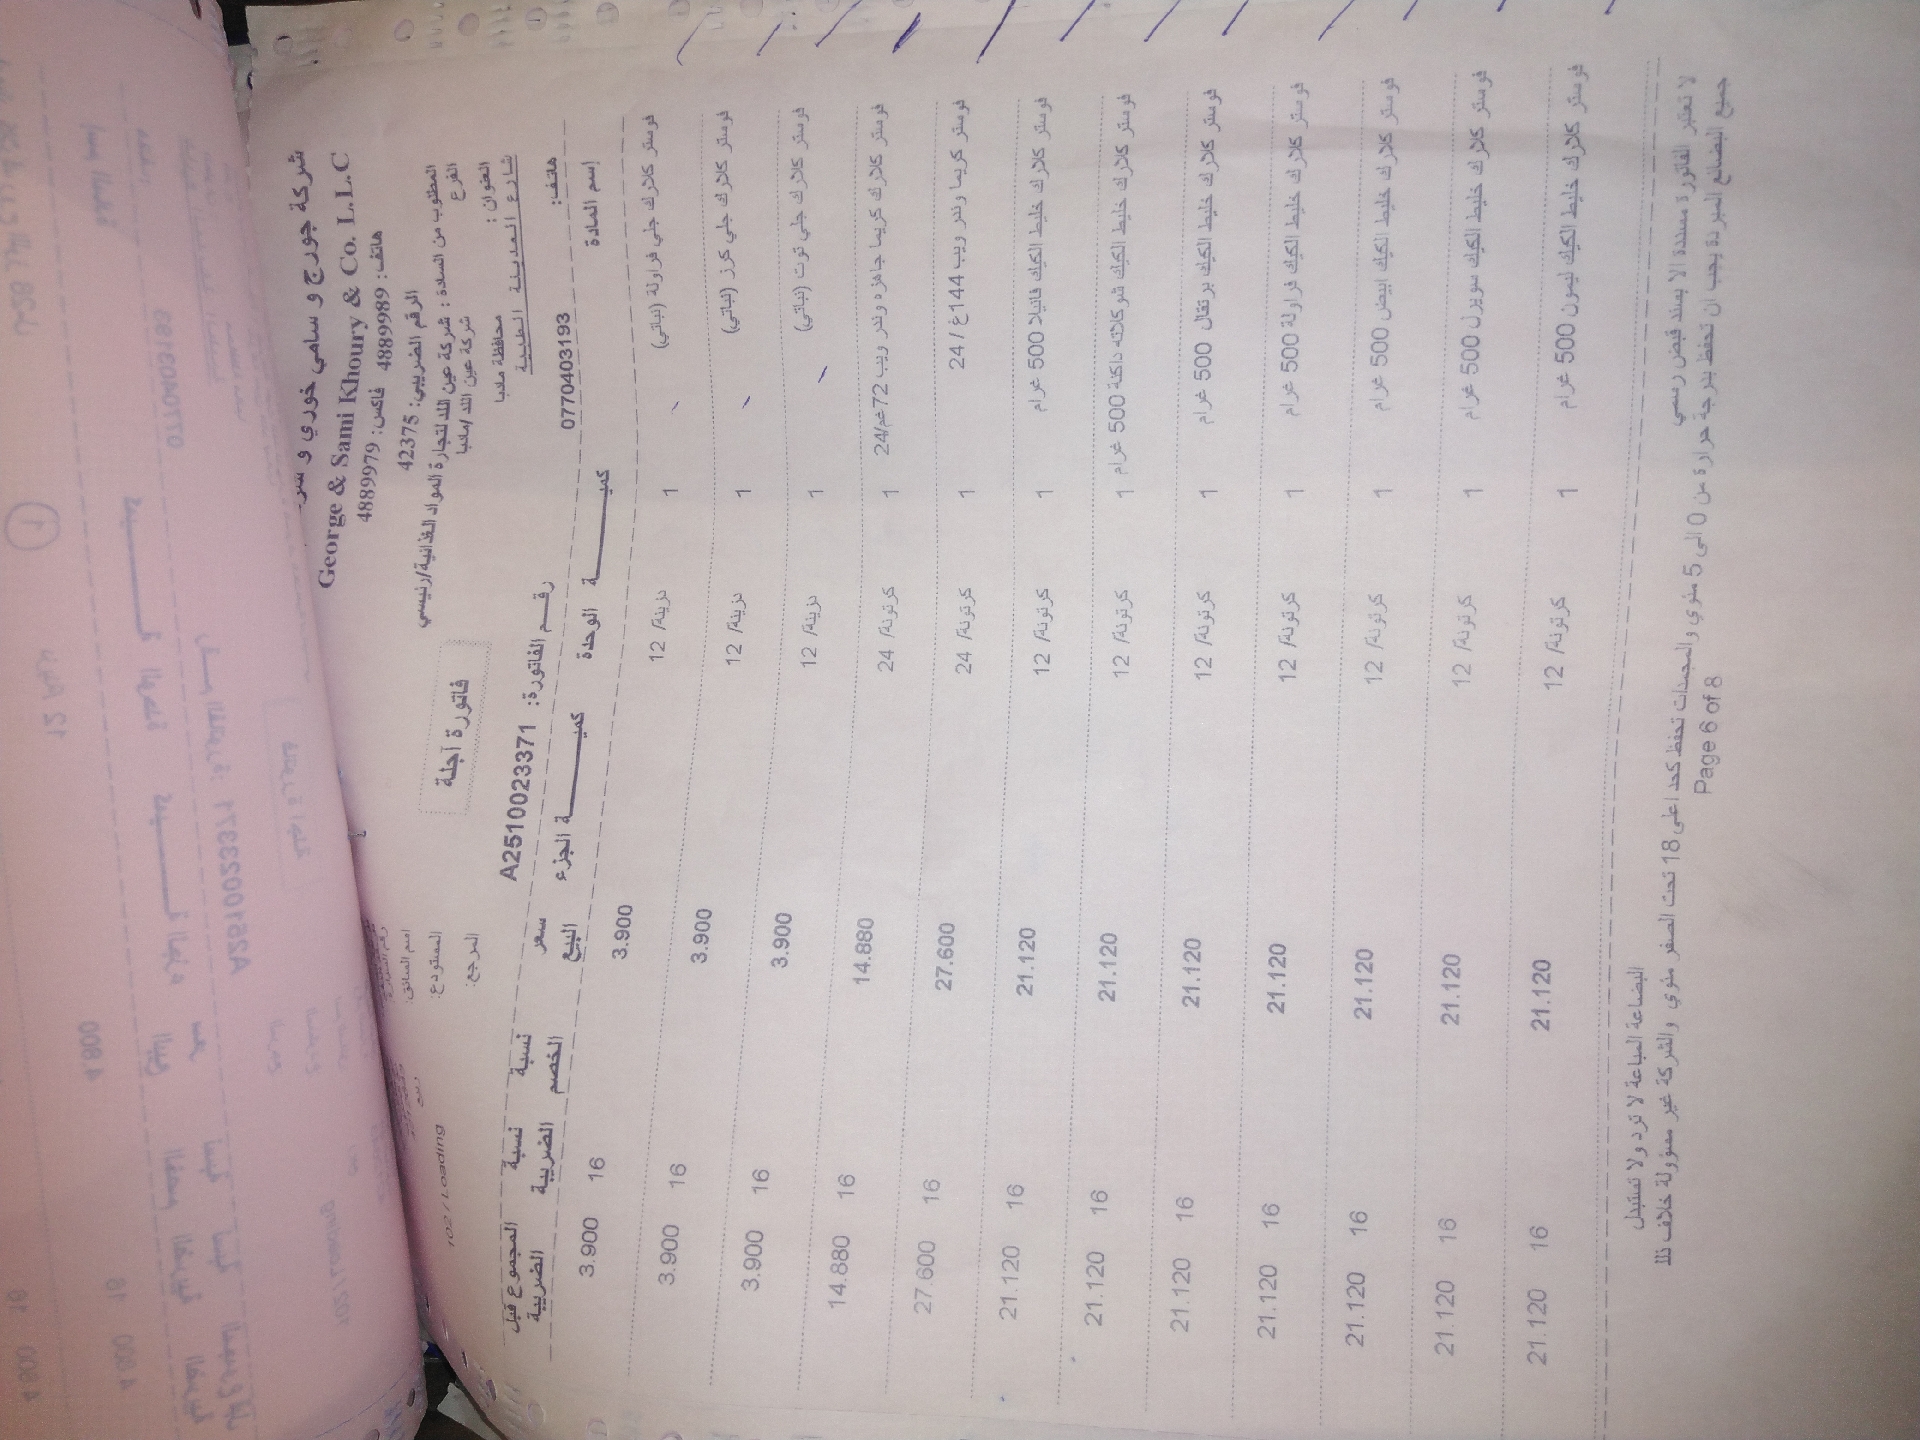 شركة جورج و سامي خوري و
George & Sami Khoury & Co. L.L.C
هاتف: 4889989 فاكس: 4889979
الرقم الضريبي: 42375
المطلوب من السادة : شركة عين اللد لتجارة المواد الغذائية/رئيسي
الفرع شركة عين اللد /مادبا
العنوان : محافظة مادبا
شارع المدينة الطبية
هاتف: 0770403193
فاتورة آجلة
رقم الفاتورة: A2510023371
اسم السائق:
المستودع: 102 / Loading
المرجع:
إسم المادة كميـــــة الوحدة كميـــــة الجزء سعر البيع نسبة الخصم نسبة الضريبية المجموع قبل الضريبية
فوستر كلارك جلي فراولة (نباتي) 1 دزينة/ 12 3.900 16 3.900
فوستر كلارك جلي كرز (نباتي) 1 دزينة/ 12 3.900 16 3.900
فوستر كلارك جلي توت (نباتي) 1 دزينة/ 12 3.900 16 3.900
فوستر كلارك كريما جاهزه وندر ويب 72غم/24 1 كرتونة/ 24 14.880 16 14.880
فوستر كريما وندر ويب 144غ / 24 1 كرتونة/ 24 27.600 16 27.600
فوستر كلارك خليط الكيك فانيلا 500 غرام 1 كرتونة/ 12 21.120 16 21.120
فوستر كلارك خليط الكيك شوكلاته داكنة 500 غرام 1 كرتونة/ 12 21.120 16 21.120
فوستر كلارك خليط الكيك برتقال 500 غرام 1 كرتونة/ 12 21.120 16 21.120
فوستر كلارك خليط الكيك فراولة 500 غرام 1 كرتونة/ 12 21.120 16 21.120
فوستر كلارك خليط الكيك ابيض 500 غرام 1 كرتونة/ 12 21.120 16 21.120
فوستر كلارك خليط الكيك سويرل 500 غرام 1 كرتونة/ 12 21.120 16 21.120
فوستر كلارك خليط الكيك ليمون 500 غرام 1 كرتونة/ 12 21.120 16 21.120
لا تعتبر الفاتورة مسددة الا بسند قبض رسمي البضاعة المباعة لا ترد ولا تستبدل
جميع البضائع المبردة يجب ان تحفظ بدرجة حرارة من 0 الى 5 مئوي والمجمدات تحفظ كحد اعلى 18 تحت الصفر مئوي والشركة غير مسؤولة خلاف ذلك
Page 6 of 8